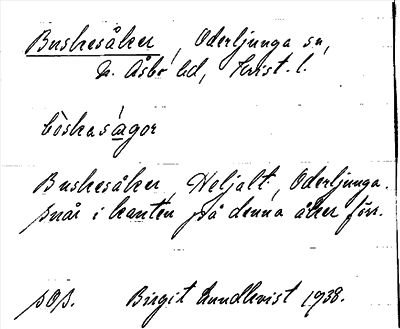 Buskesåker, Oderljunga sn,
N. Åsbo hd, Krist. l.
bòskaságor
Buskesåker, Heljalt, Oderljunga.
snår i kanten på denna åker förr.
sps. Birgit Lundkvist 1938.